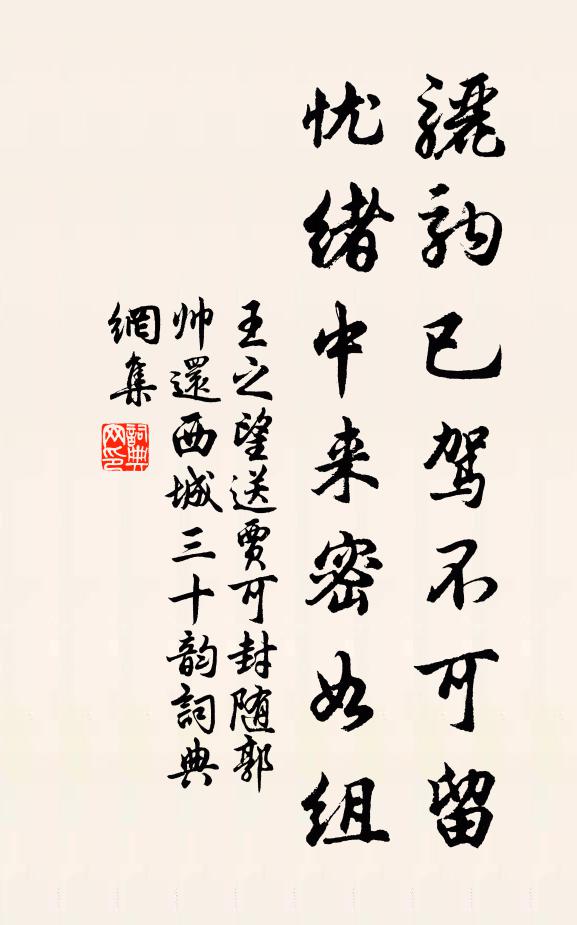 骊驹已驾不可留
忧绪中来密如组
王之望送贾可封随郭
帅還西城三十韵詞典
網集
詞典
网印